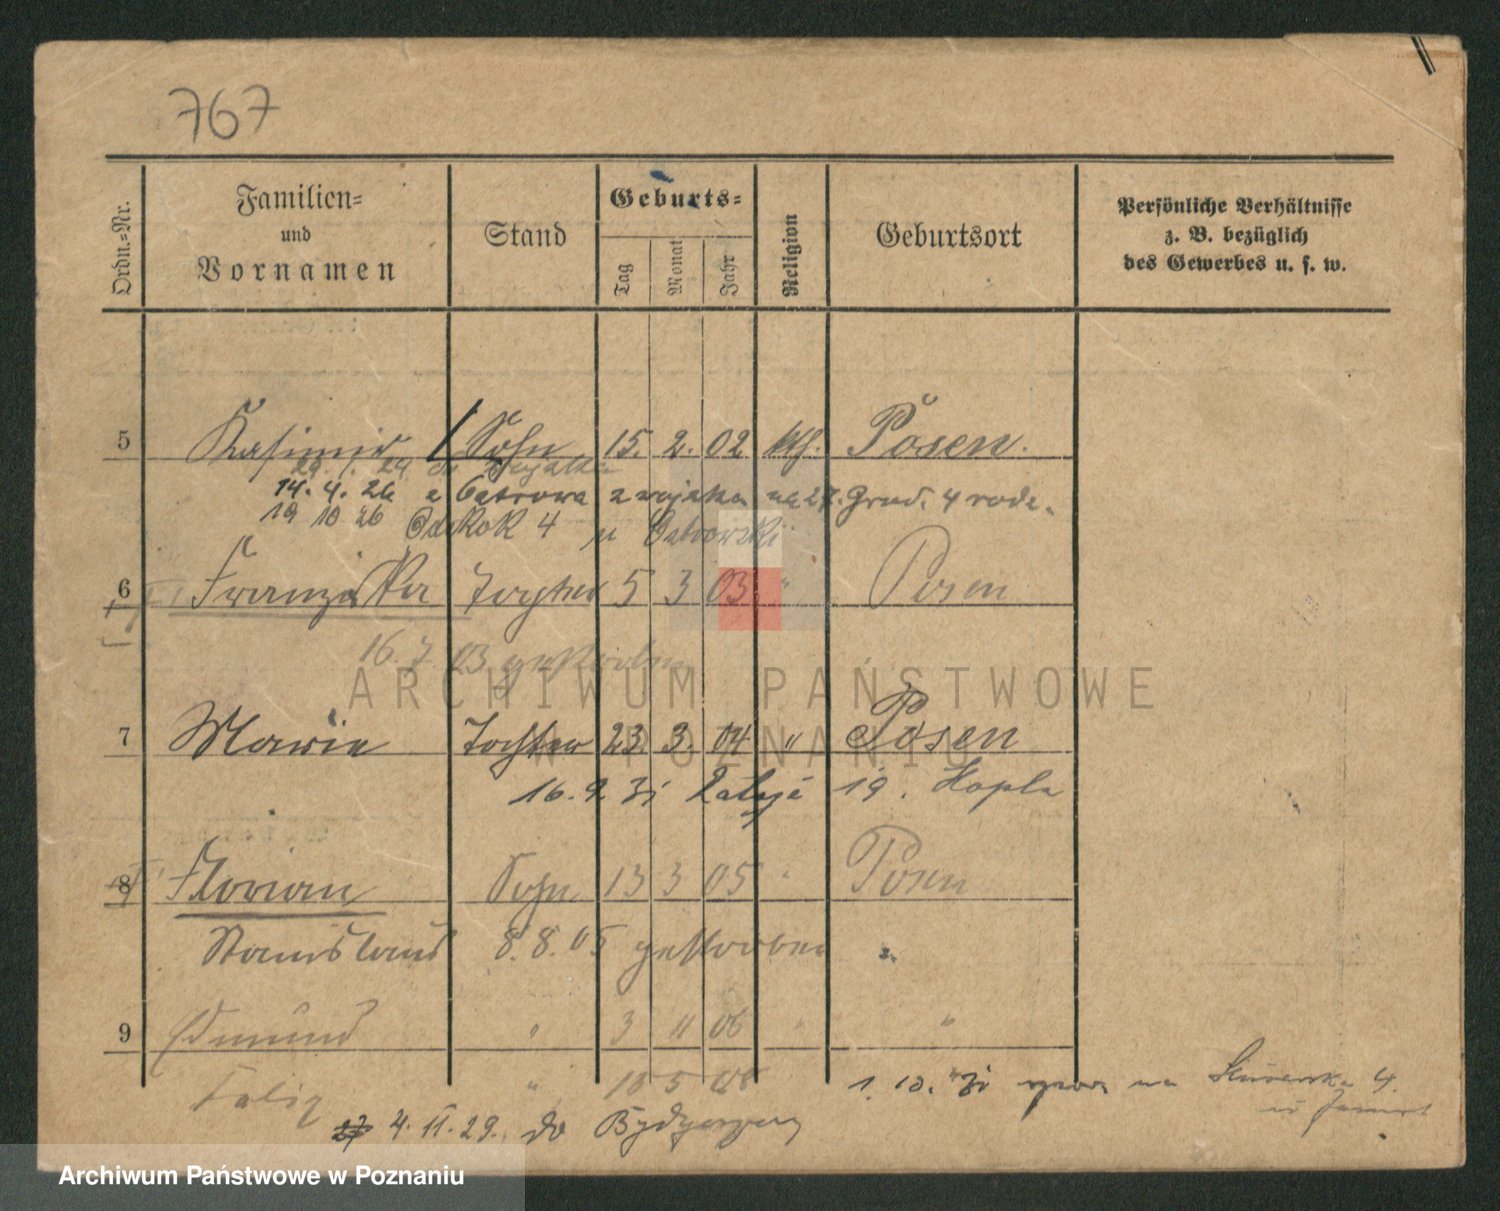 767
Ordn.-Nr.
Familien-
und
Vornamen
Stand
Geburts-
Tag
Monat
Jahr
Religion
Geburtsort
Persönliche Verhältnisse
z. B. bezüglich
des Gewerbes u. s. w.
5 Kasimir Sohn 15. 2. 02 kth. Posen.
14. 4. 26 z wojska na 27. Grud. 4
19 10 26 4 u
6 Franziska Tochter 5 3 03 " Posen
16. 7. 03 gestorben
7 Marie Tochter 23. 3. 04 " Posen
16. 9 31 19.
8 Florian Sohn 13 3 05 " Posen
Stanislaus 8. 8. 05 gestorben
9 Edmund " 3 11 06 " "
Felix " 18 5 08
1. 10. 31 na 4.
4. 11. 29. do Bydgoszczy
ARCHIWUM PAŃSTWOWE
W POZNANIU
Archiwum Państwowe w Poznaniu